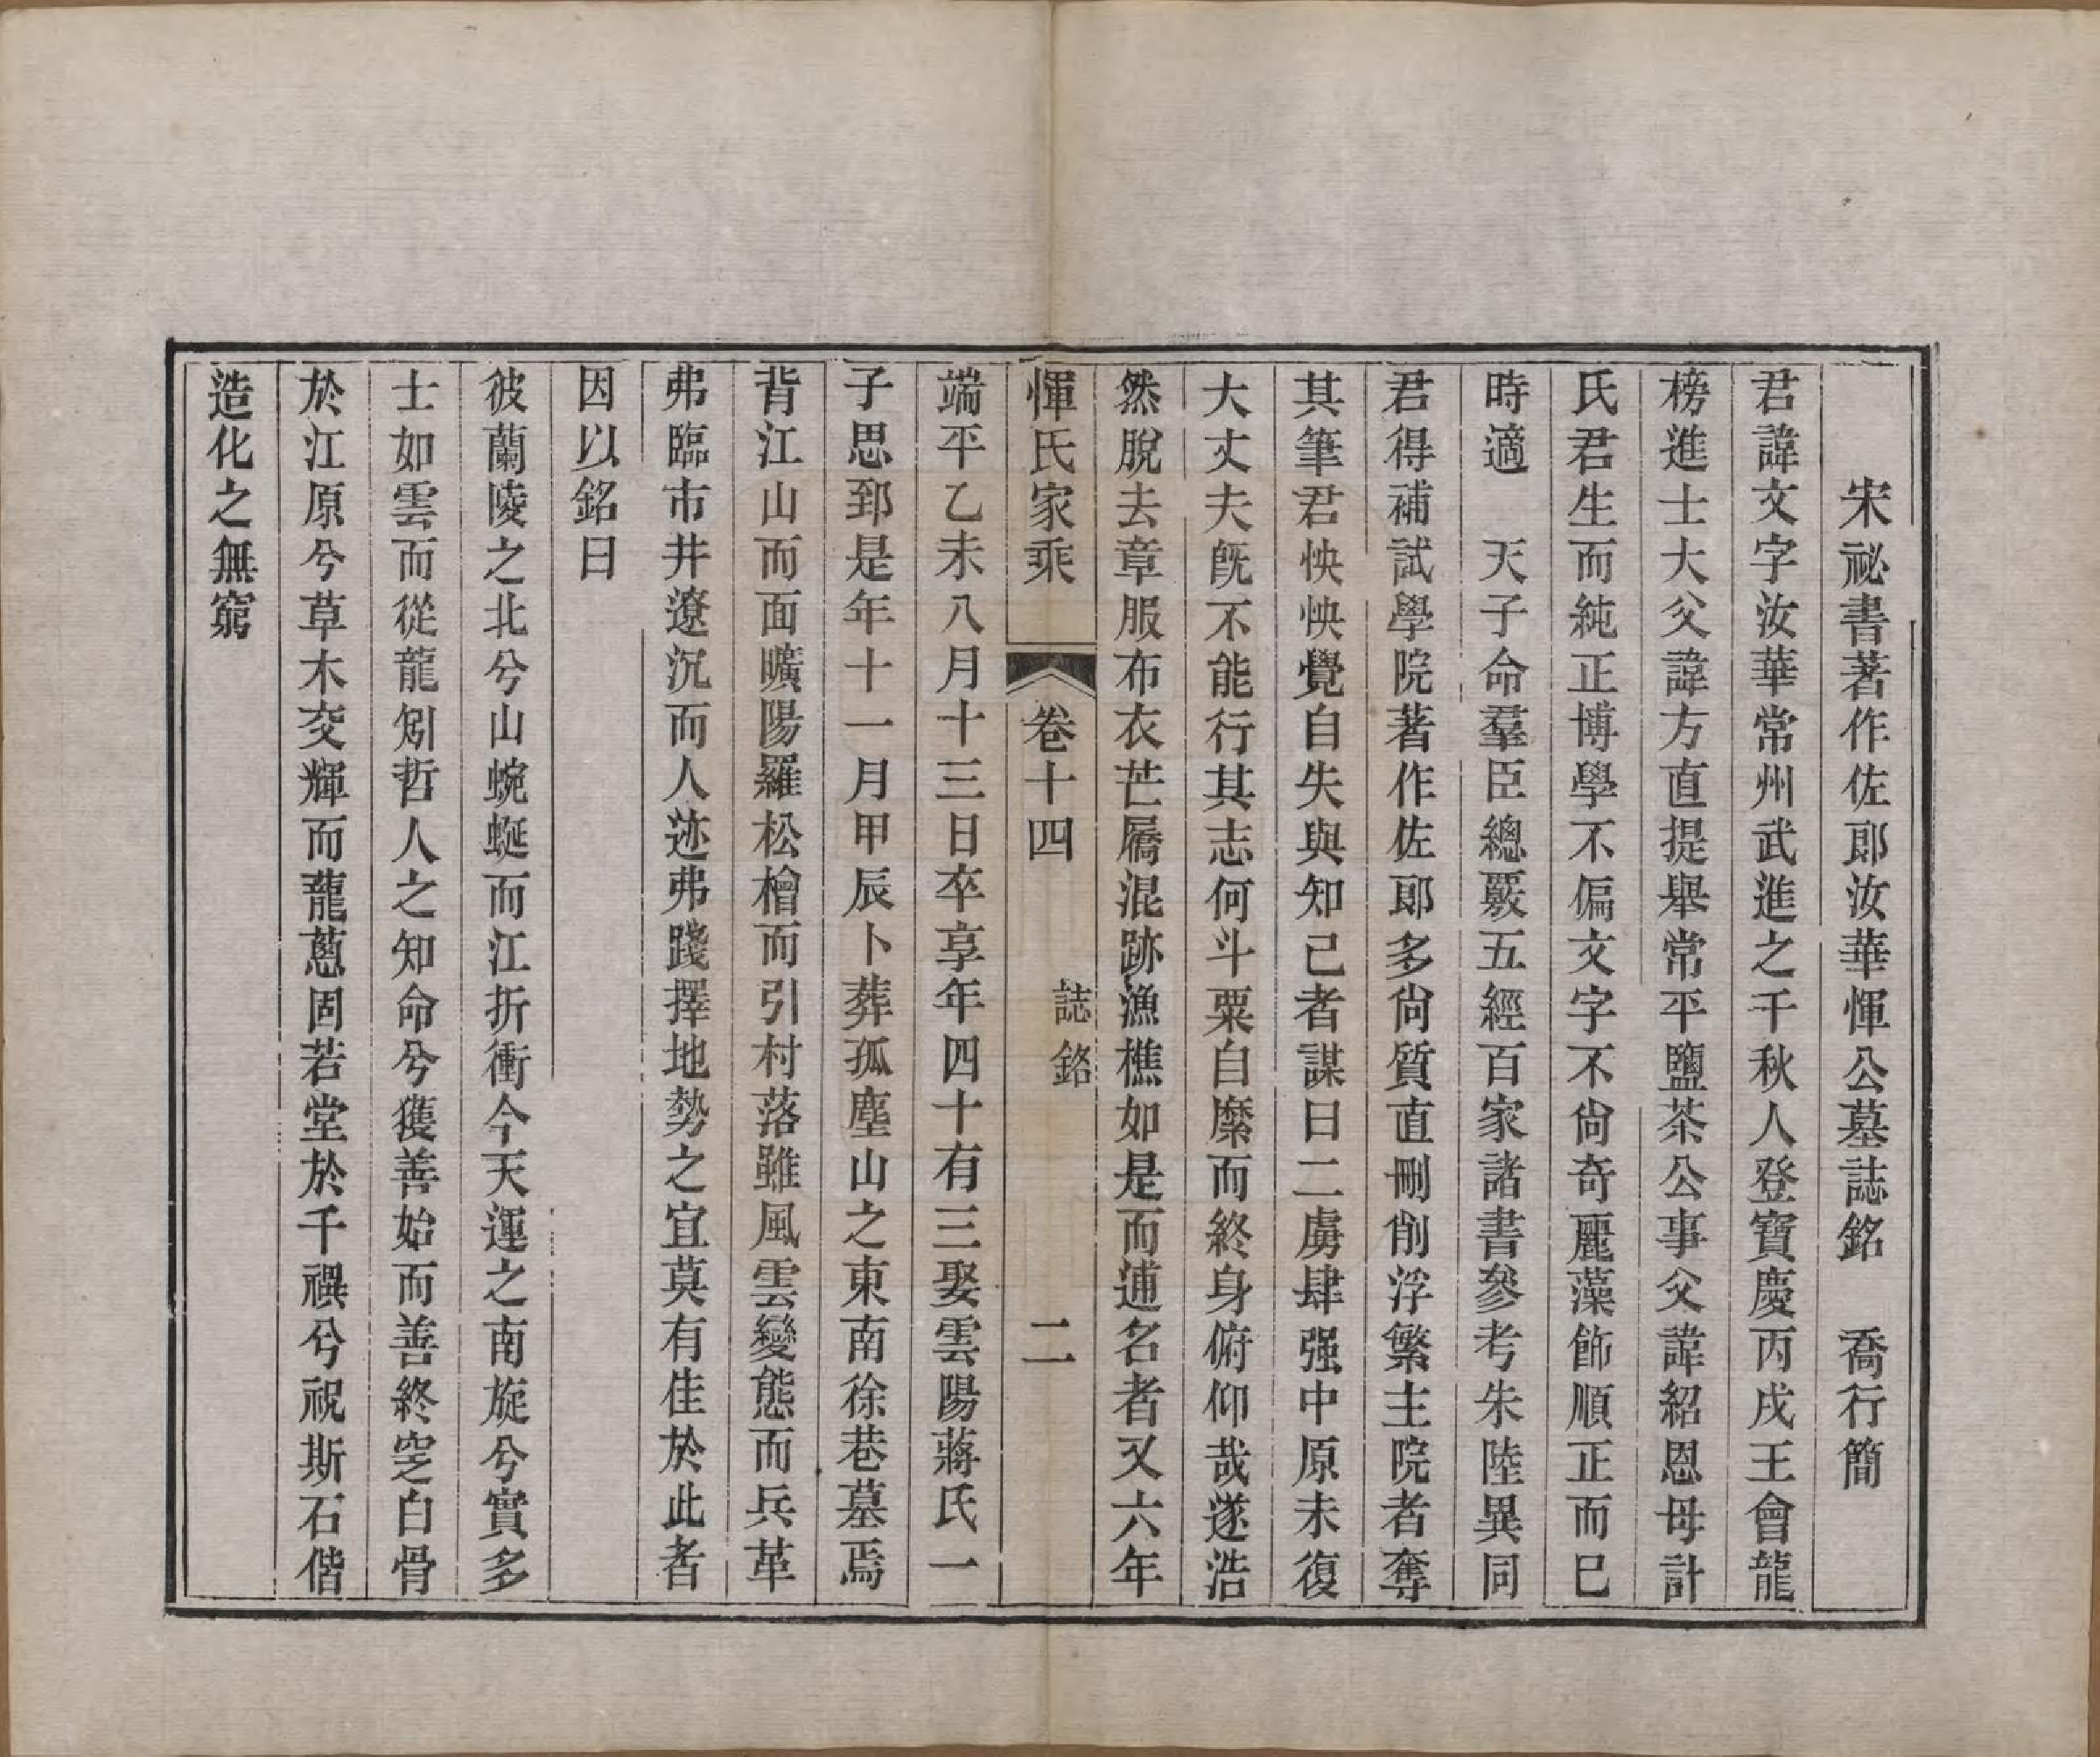 宋祕書著作佐郎汝華惲公墓誌銘　喬行簡
君諱文字汝華常州武進之千秋人登寶慶丙戌王會龍
榜進士大父諱方直提舉常平鹽茶公事父諱紹恩母計
氏君生而純正博學不偏文字不尙奇麗藻飾順正而巳
時適　天子命羣臣總覈五經百家諸書參考朱陸異同
君得補試學院著作佐郎多尙質直刪削浮繁主院者奪
其筆君怏怏覺自失與知己者謀曰二虜肆强中原未復
大丈夫旣不能行其志何斗粟自縻而終身俯仰哉遂浩
然脫去章服布衣芒屩混跡漁樵如是而逋名者又六年
惲氏家乘　卷十四　誌銘　二
端平乙未八月十三日卒享年四十有三娶雲陽蔣氏一
子思郅是年十一月甲辰卜葬孤塵山之東南徐巷墓焉
背江山而面曠陽羅松檜而引村落雖風雲變態而兵革
弗臨市井遼沉而人迹弗踐擇地勢之宜莫有佳於此者
因以銘曰
彼蘭陵之北兮山蜿蜒而江折衝今天運之南旋兮實多
士如雲而從龍矧哲人之知命兮獲善始而善終窆白骨
於江原兮草木交輝而蘢蔥固若堂於千禩兮祝斯石偕
造化之無窮